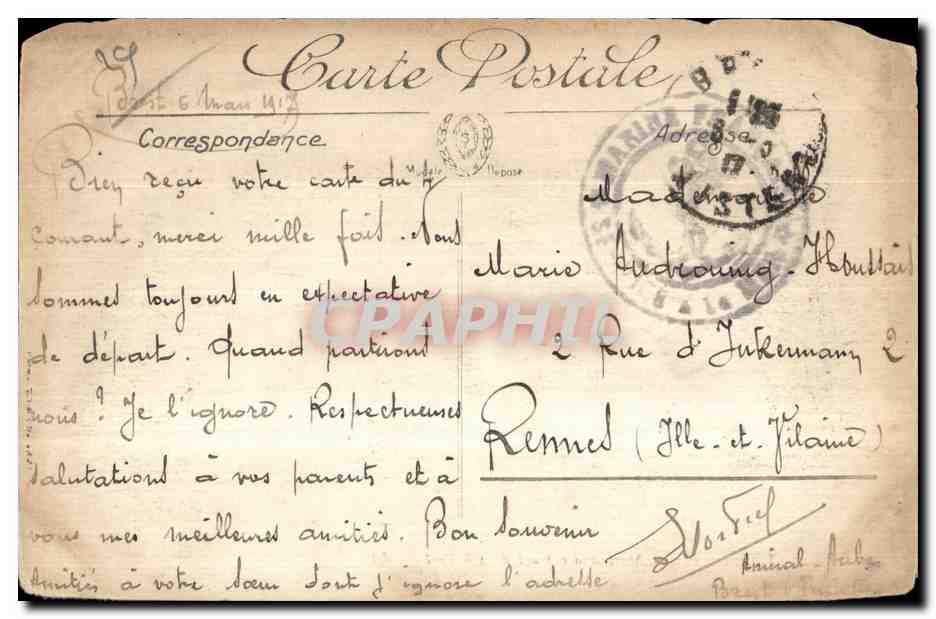 Carte Postale
Brest 6 Mars 191
Correspondance
Adresse
Modèle Déposé
Bien reçu votre carte du 4
Courant, merci mille fois. Nous
sommes toujours en expectative
de départ. Quand partirons
nous ? Je l'ignore. Respectueuses
salutations à vos parents et à
vous mes meilleures amitiés. Bon souvenir
Amitiés à votre sœur dont j'ignore l'adresse
Mademoiselle
Marie Houssais
2 Rue d'Inkermann 2
Rennes (Ille-et-Vilaine)
Amiral-Aube
Brest
MARINE
CPAPHIL